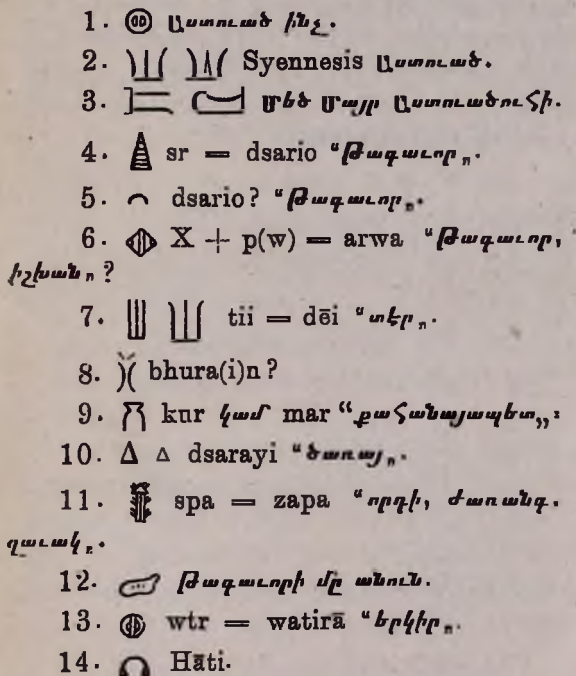 1. Աստուած ինչ.
2. Syennesis Աստուած.
3. Մեծ Մայր Աստուածուհի.
4. sr = dsario “Թագաւոր„.
5. dsario? “Թագաւոր„.
6. X + p(w) = arwa “Թագաւոր,
իշխան„?
7. tii = dēi “տէր„.
8. bhura(i)n?
9. kur կամ mar “քահանայապետ„:
10. Δ Δ dsarayi “ծառայ„.
11. spa = zapa “որդի, ժառանգ.
զաւակ„.
12. Թագաւորի մը անուն.
13. wtr = watirā “երկիր„.
14. Hāti.